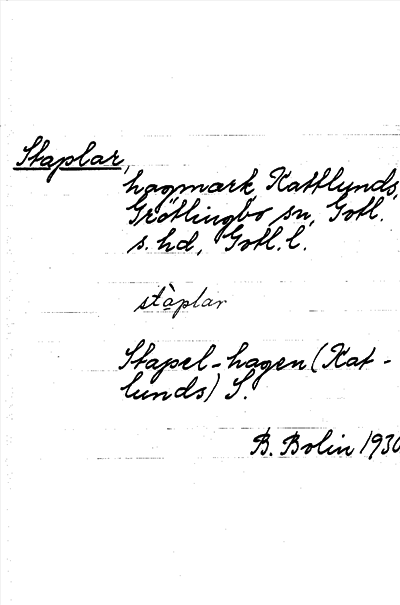 Staplar,
hagmark Kattlunds,
Grötlingbo sn, Gotl.
s. hd, Gotl. l.
stàplar
Stapel-hagen (Kat-
lunds) S.
B. Bolin 1930